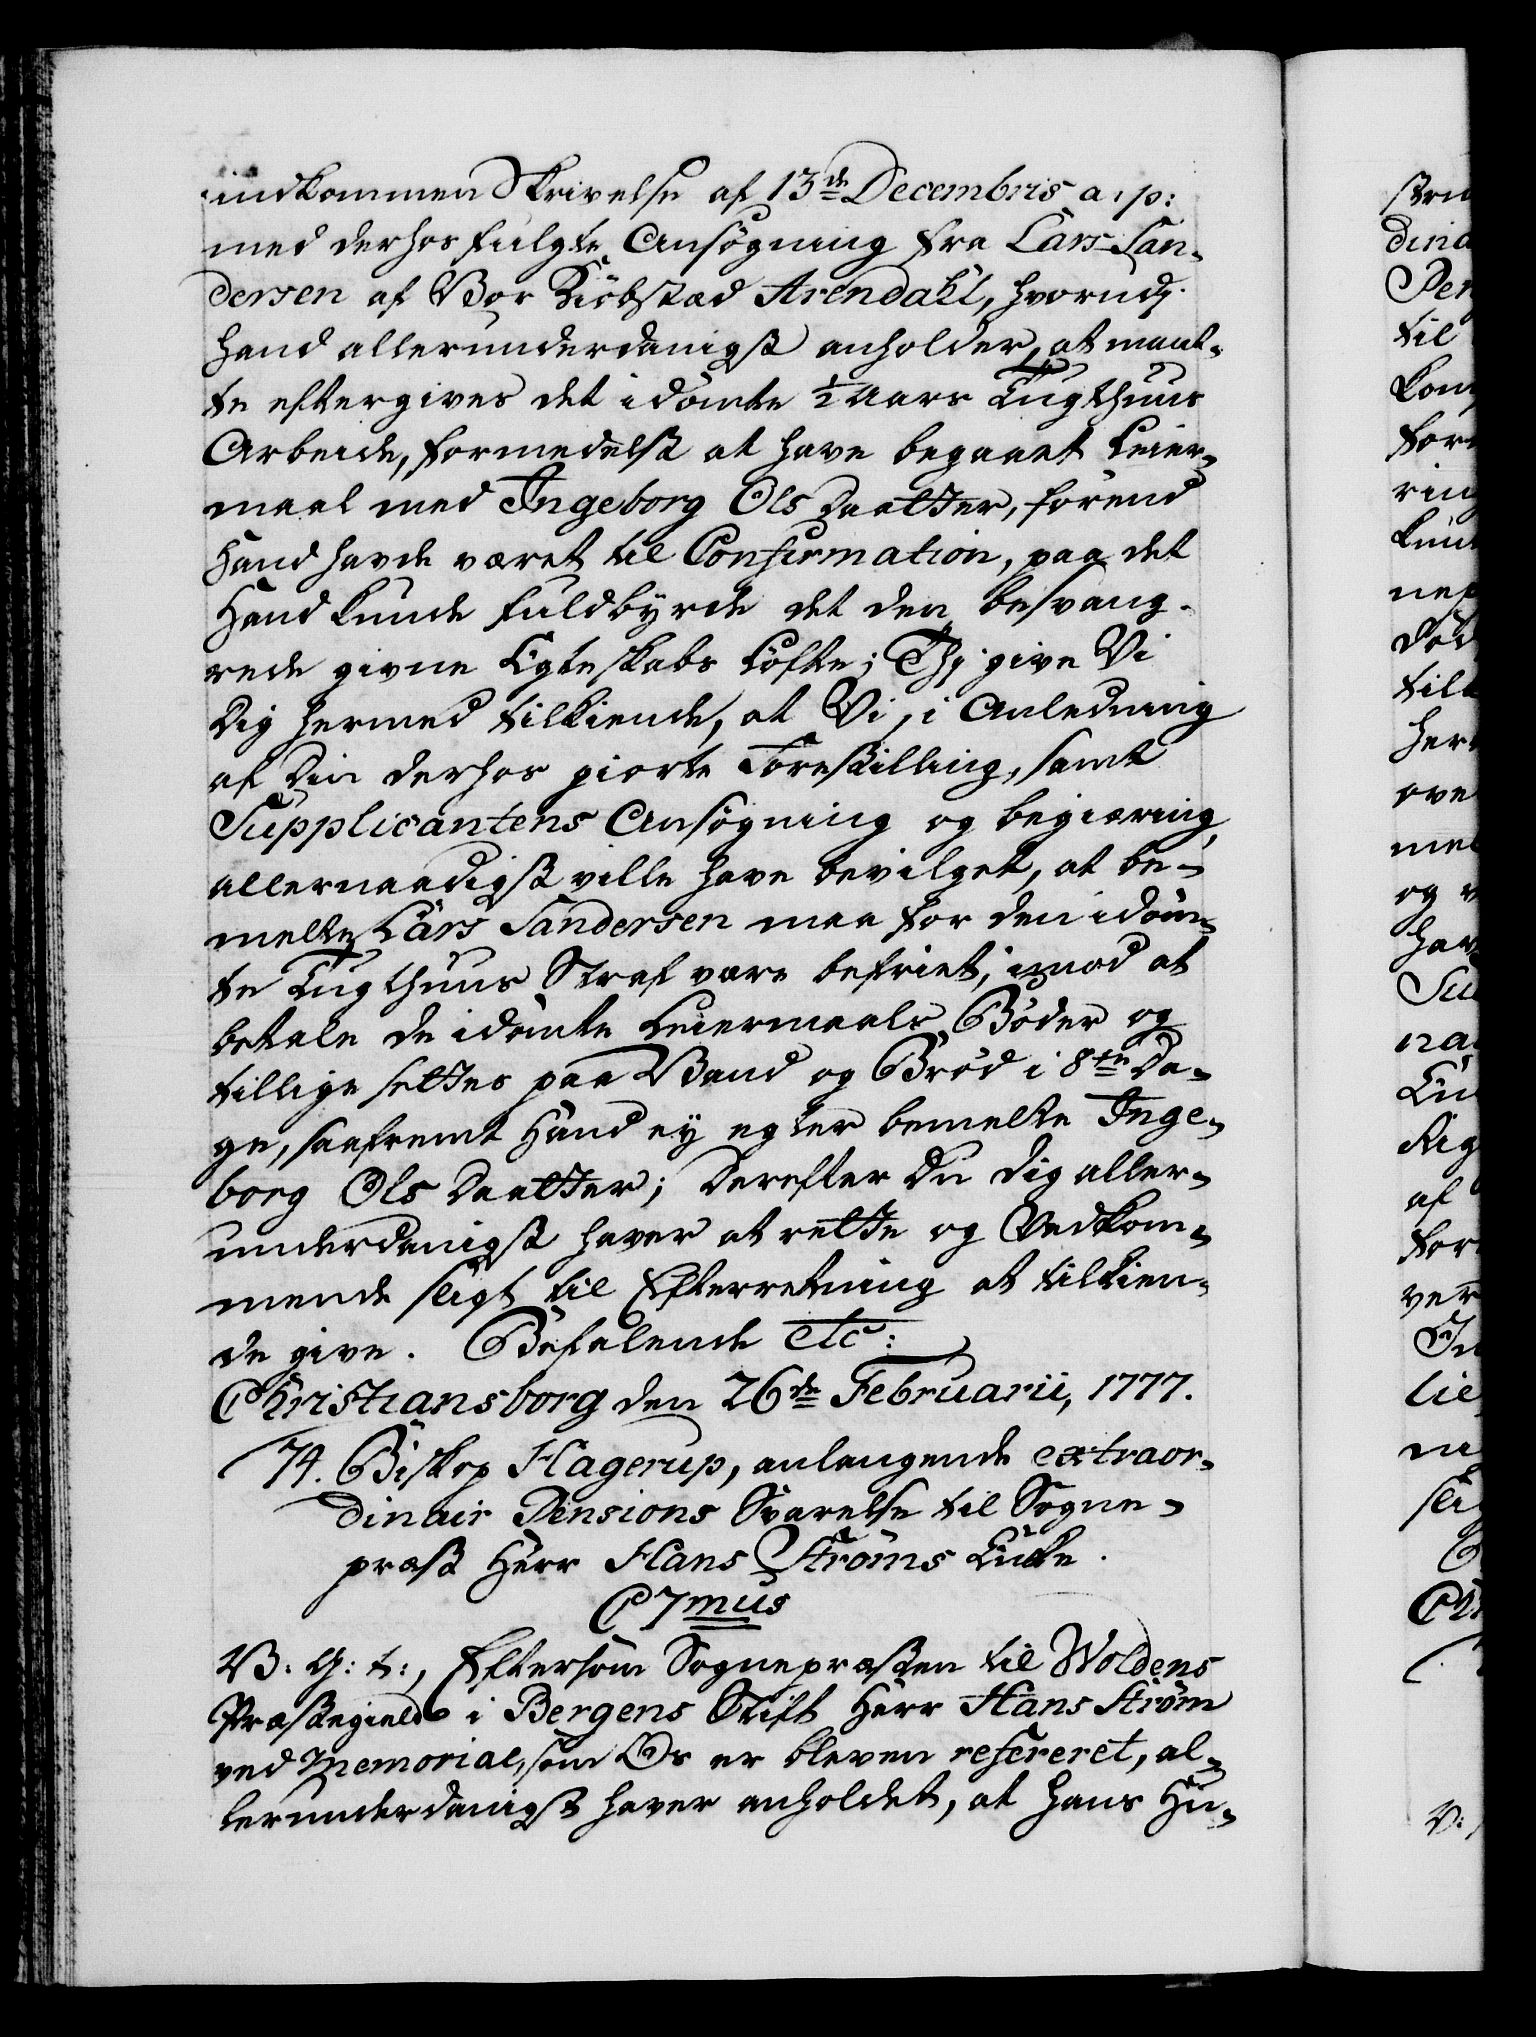 indkommen Skrivelse af 13de Decembris a: p:
med derhos fulgte Ansøgning fra Lars San-
dersen af Vor Kiøbstad Arendahl, hvorudj
Hand allerunderdanigst anholder, at maat-
te eftergives det idømte 1/2 Aars Tugthuus
Arbeide, formedelst at have begaaet Leier-
maal med Ingeborg Ols Daatter, førend
Hand havde været til Confirmation, paa det
Hand kunde fuldbyrde det den besvang-
rede givne Egteskabs Løfte; Thj give Vi
Dig hermed tilkiende, at Vi, i Anledning
af Din derhos giorte Forestilling, samt
Supplicantens Ansøgning og begiæring,
allernaadigst ville have bevilget, at be-
melte Lars Sandersen maa for den idøm-
te Tugthuus Straf være befriet, imod at
betale de idømte Leiermaals Bøder og
tillige settes paa Vand og Brød i 8te Da-
ge, saafremt Hand ey egter bemelte Inge-
borg Ols Daatter; Derefter Du Dig aller-
underdanigst haver at rette og Vedkom-
mende sligt til Efterretning at tilkien-
de give. Befalende etc:
Christiansborg den 26de Februarii, 1777.
74. Biskop Hagerup, anlangende extraor-
dinair Pensions Svarelse til Sogne-
præst Herr Hans Strøms Enke.
C 7mus
V: G: t:, Eftersom Sognepræsten til Woldens
Præstegield i Bergens Stift Herr Hans Strøm
ved Memorial, som Os er bleven refereret, al-
lerunderdanigst haver anholdet, at hans Hu-